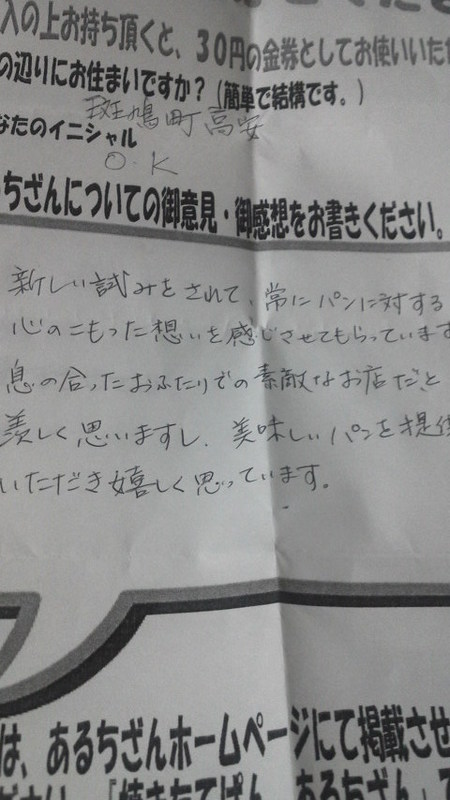 入の上お持ち頂くと、30円の金券としてお使いいた
の辺りにお住まいですか？(簡単で結構です。)
斑鳩町高安
なたのイニシャル
O.K
ちざんについての御意見・御感想をお書きください。
新しい試みをされて、常にパンに対する
心のこもった想いを感じさせてもらっています
息の合ったおふたりでの素敵なお店だと
羨しく思いますし、美味しいパンを提供
いただき嬉しく思っています。
は、あるちざんホームページにて掲載させ
ださい。「焼きたてぱん あるちざん」で